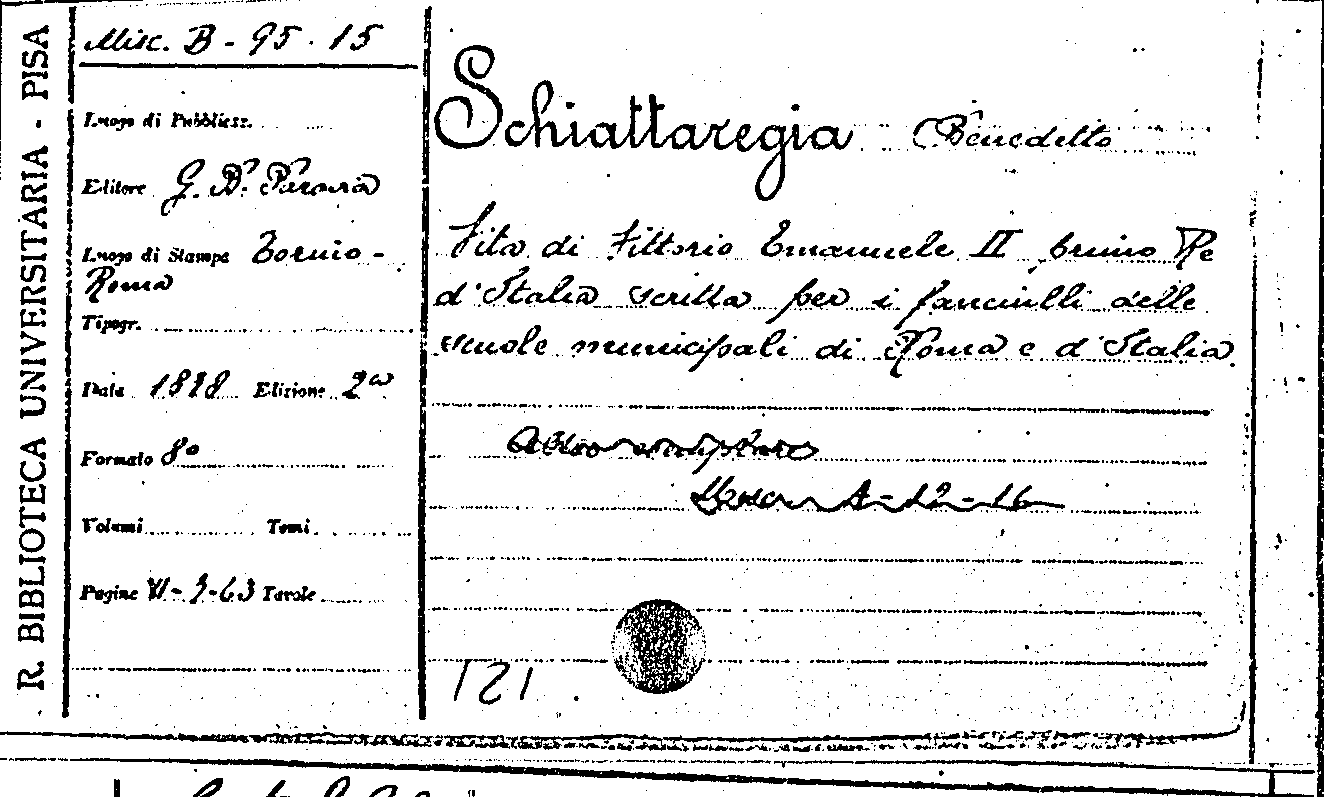 R. BIBLIOTECA UNIVERSITARIA - PISA
Misc. B - 95 - 15
Luogo di Pubblicaz.
Editore G. B. Paravia
Luogo di Stampa Torino -
Roma
Tipogr.
Data 1878 Edizione 2a
Formato 8º
Volumi Tomi
Pagine VI-3-63 Tavole
Schiattaregia Benedetto
Vita di Vittorio Emanuele II primo Re
d'Italia scritta per i fanciulli delle
scuole municipali di Roma e d'Italia.
Altro esemplare
A-12-16
121